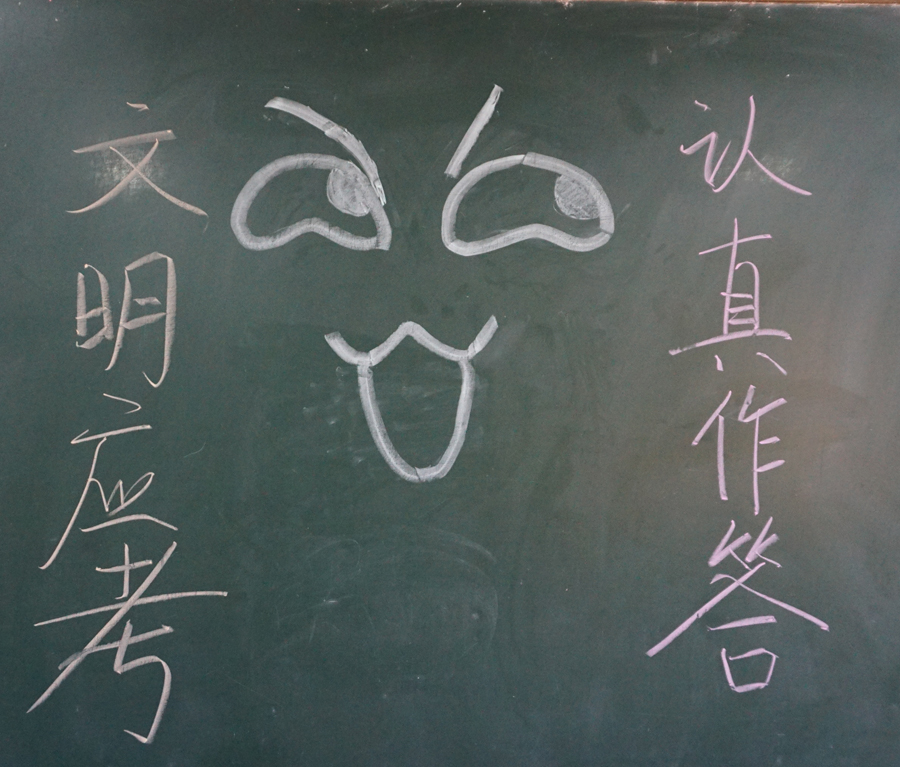 文明应考
认真作答